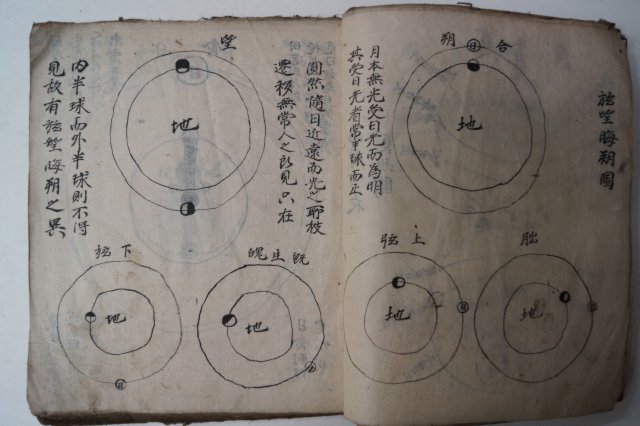 弦望晦朔圖
合朔
日
地
月本無光受日光而為明
其受日光者常半球而止
朏
地
日
上弦
地
日
圓然隨日近遠而光之
遷移無常人之所見只在
望
地
內半球而外半球則不得
見故有弦望晦朔之異
既生魄
地
日
下弦
地
日